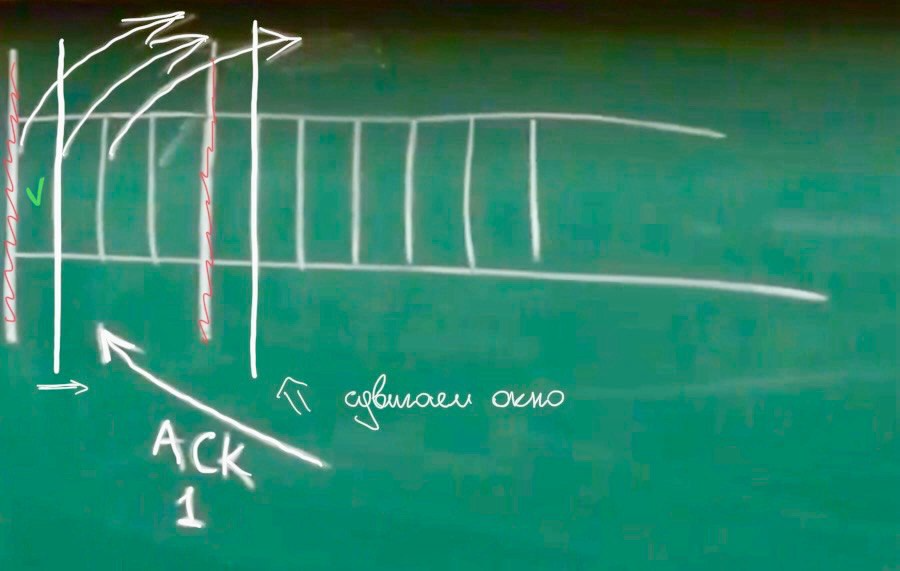 сдвигаем окно
ACK
1